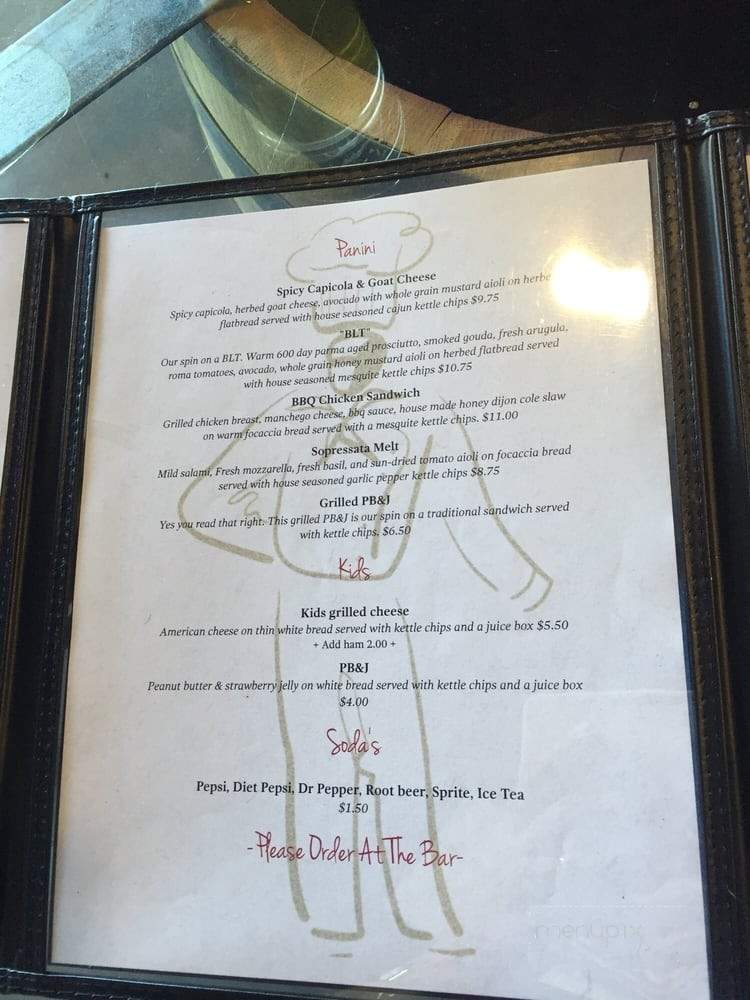 Panini
Spicy Capicola & Goat Cheese
Spicy capicola, herbed goat cheese, avocado with whole grain mustard aioli on
flatbread served with house seasoned cajun kettle chips $9.75
"BLT"
Our spin on a BLT. Warm 600 day parma aged prosciutto, smoked gouda, fresh arugula,
roma tomatoes, avocado, whole grain honey mustard aioli on herbed flatbread served
with house seasoned mesquite kettle chips $10.75
BBQ Chicken Sandwich
Grilled chicken breast, manchego cheese, bbq sauce, house made honey dijon cole slaw
on warm focaccia bread served with a mesquite kettle chips. $11.00
Sopressata Melt
Mild salami, Fresh mozzarella, fresh basil, and sun-dried tomato aioli on focaccia bread
served with house seasoned garlic pepper kettle chips $8.75
Grilled PB&J
Yes you read that right. This grilled PB&J is our spin on a traditional sandwich served
with kettle chips. $6.50
Kids
Kids grilled cheese
American cheese on thin white bread served with kettle chips and a juice box $5.50
+ Add ham 2.00 +
PB&J
Peanut butter & strawberry jelly on white bread served with kettle chips and a juice box
$4.00
Soda's
Pepsi, Diet Pepsi, Dr Pepper, Root beer, Sprite, Ice Tea
$1.50
-Please Order At The Bar-
menupix